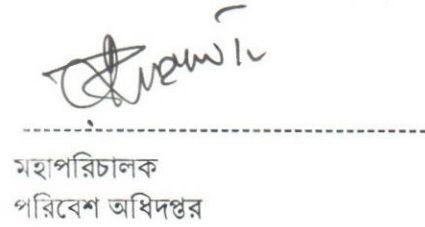 মহাপরিচালক
পরিবেশ অধিদপ্তর